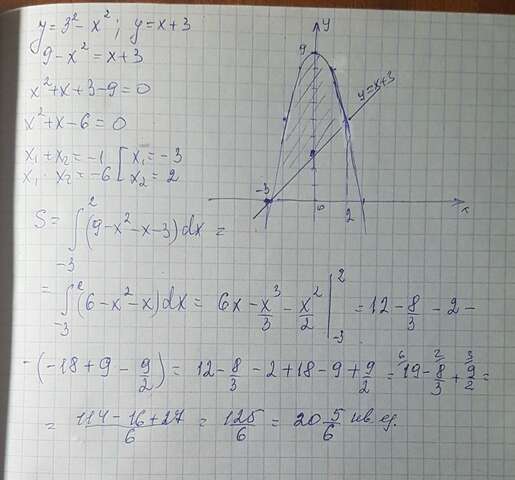 y = 3² - x² ; y = x + 3
9 - x² = x + 3
x² + x + 3 - 9 = 0
x² + x - 6 = 0
x₁ + x₂ = -1 [ x₁ = -3
x₁ · x₂ = -6 [ x₂ = 2
S = ∫₋₃² (9 - x² - x - 3) dx =
= ∫₋₃² (6 - x² - x) dx = 6x - x³/3 - x²/2 |₋₃² = 12 - 8/3 - 2 -
- (-18 + 9 - 9/2) = 12 - 8/3 - 2 + 18 - 9 + 9/2 = ⁶19 - ²8/3 + ³9/2 =
= (114 - 16 + 27)/6 = 125/6 = 20 5/6 кв ед.
y
9
y = x + 3
-3
0
2
x